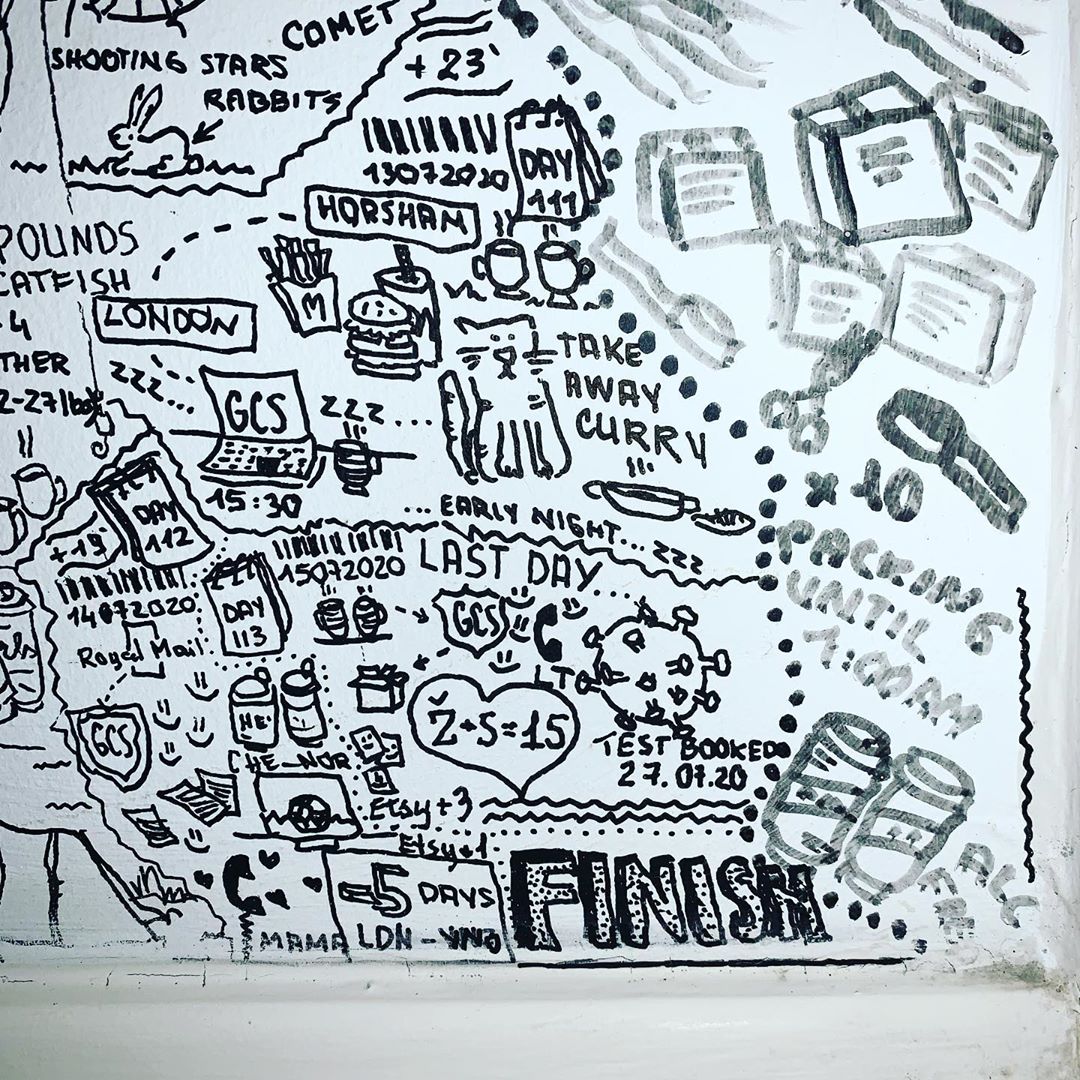 COMET
SHOOTING STARS
RABBITS
+23
13072020
DAY
111
HORSHAM
POUNDS
CATFISH
M
LONDON
TAKE
AWAY
CURRY
zzz
GCS
zzz....
15:30
x10
PACKING
UNTIL
7:00AM
... EARLY NIGHT... zzz
DAY
112
+19
14072020
Royal Mail
15072020
LAST DAY
DAY
113
GCS
GCS
HE'
CHE_NOR
Ž+S=15
TEST BOOKED
27.07.20
Etsy+3
Etsy+1
MAMA
-5 DAYS
LDN - VNO
FINISH
ALL